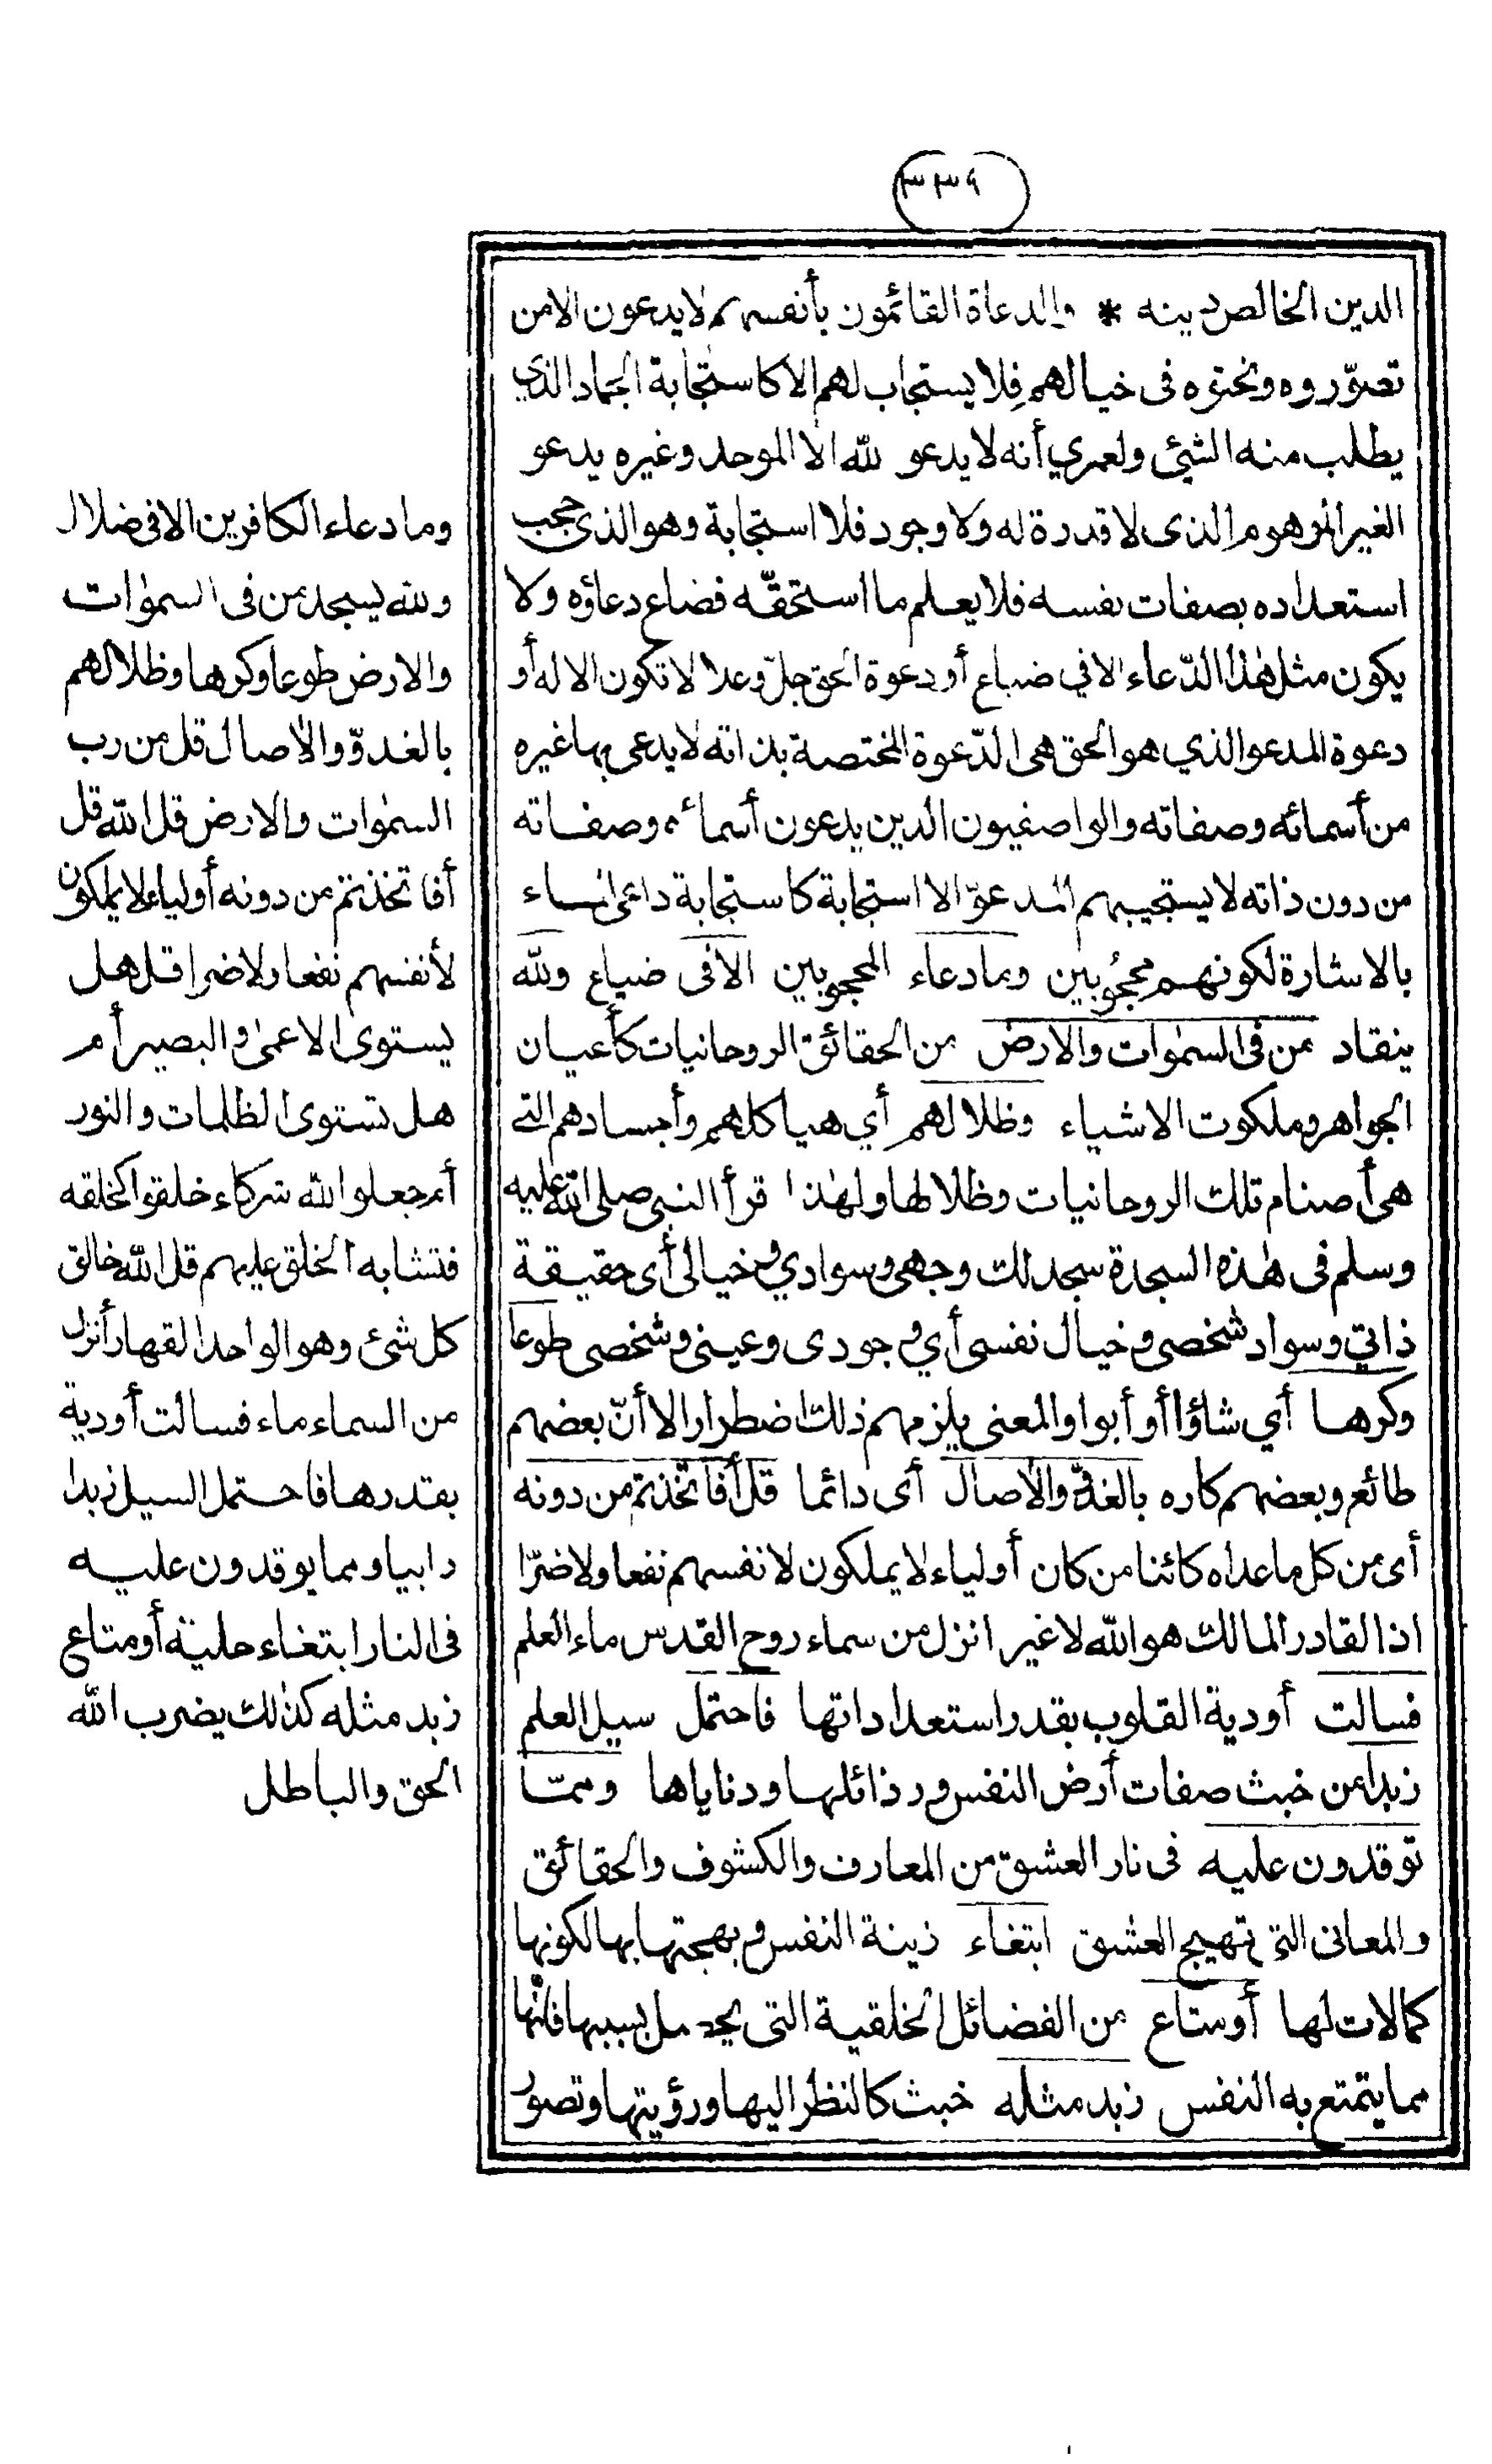 ٣٣٩
الدين الخالص دينه * والدعاة القائمون بأنفسهم لا يدعون الا من
تصوّروه ونحتوه فى خيالهم فلا يستجاب لهم الا كاستجابة الجماد الذي
يطلب منه الشئ ولعمري أنه لا يدعو لله الا الموحد وغيره يدعو
الغير الموهوم الذى لا قدرة له ولا وجود فلا استجابة وهو الذى حجب
استعداده بصفات نفسه فلا يعلم ما استحقّه فضاع دعاؤه ولا
يكون مثل هٰذا الدّعاء الا في ضياع أو دعوة الحق جلّ وعلا لا تكون الا له أو
دعوة المدعو الذي هو الحق هى الدّعوة المختصة بذاته لا يدعى بها غيره
من أسمائه وصفاته والواصفيون الذين يدعون أسمائه وصفاته
من دون ذاته لا يستجيبهم المدعوّ الا استجابة كاستجابة داعى الماء
بالاشارة لكونهم محجوبين وما دعاء المحجوبين الا فى ضياع ولله
ينقاد من فى السمٰوات والارض من الحقائق الروحانيات كأعيان
الجواهر وملكوت الاشياء وظلالهم أي هياكلهم وأجسادهم التى
هى أصنام تلك الروحانيات وظلالها ولهٰذا قرأ النبى صلى الله عليه
وسلم فى هٰذه السجدة سجد لك وجهى وسوادي وخيالى أى حقيقة
ذاتي وسواد شخصى وخيال نفسى أي وجودى وعينى وشخصى طوعا
وكرها أي شاؤا أو أبوا والمعنى يلزمهم ذلك اضطرارا الا أنّ بعضهم
طائع وبعضهم كاره بالغدوّ والاٰصال أى دائما قل أفاتخذتم من دونه
أى من كل ما عداه كائنا من كان أولياء لا يملكون لانفسهم نفعا ولا ضرّا
اذ القادر المالك هو الله لا غير انزل من سماء روح القدس ماء العلم
فسالت أودية القلوب بقدر استعداداتها فاحتمل سيل العلم
زبدا من خبث صفات أرض النفس ورذائلها ودناياها وممّا
توقدون عليه فى نار العشق من المعارف والكشوف والحقائق
والمعانى التى تهيج العشق ابتغاء زينة النفس وبهجتها بها لكونها
كمالات لها أو متاع من الفضائل الخلقية التى يحصل بسببها فانّها
مما يتمتع به النفس زبد مثله خبث كالنظر اليها ورؤيتها وتصوّر
وما دعاء الكافرين الا فى ضلال
ولله يسجد من فى السمٰوات
والارض طوعا وكرها وظلالهم
بالغدوّ والاٰصال قل من رب
السمٰوات والارض قل الله قل
أفاتخذتم من دونه أولياء لا يملكون
لأنفسهم نفعا ولا ضرا قل هل
يستوى الاعمىٰ والبصير أم
هل تستوى الظلمات والنور
أم جعلوا لله شركاء خلقوا كخلقه
فتشابه الخلق عليهم قل الله خالق
كل شئ وهو الواحد القهار أنزل
من السماء ماء فسالت أودية
بقدرها فاحتمل السيل زبدا
رابيا ومما يوقدون عليه
فى النار ابتغاء حلية أو متاع
زبد مثله كذٰلك يضرب الله
الحق والباطل